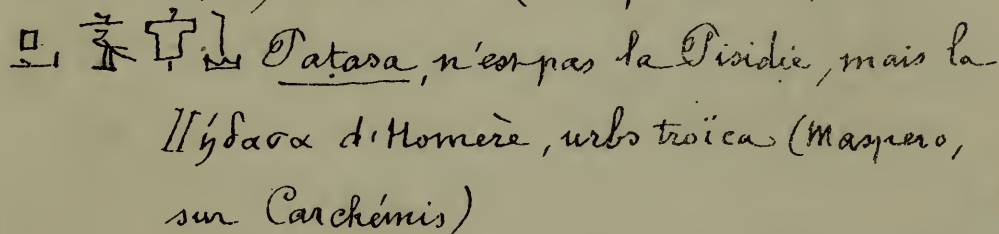 Patasa, n'est pas la Pisidie, mais la
Πήδασα d'Homère, urbs troïca (Maspero,
sur Carchémis)